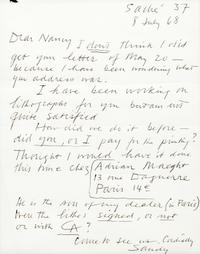 Saché 37
8 July 68
Dear Nancy I don't think I did
get you letter of May 20 —
because I have been wondering what
you address was.
I have been working on
lithographs for you but am not
quite satisfied
How did we do it before —
did you, or I pay for the printing?
Thought I would have it done
this time chez Adrian Maeght
13 rue Daguerre
Paris 14e
He is the son of my dealer (in Paris)
Were the lithos signed, or not
or with CA?
Come to see us. Cordially
Sandy